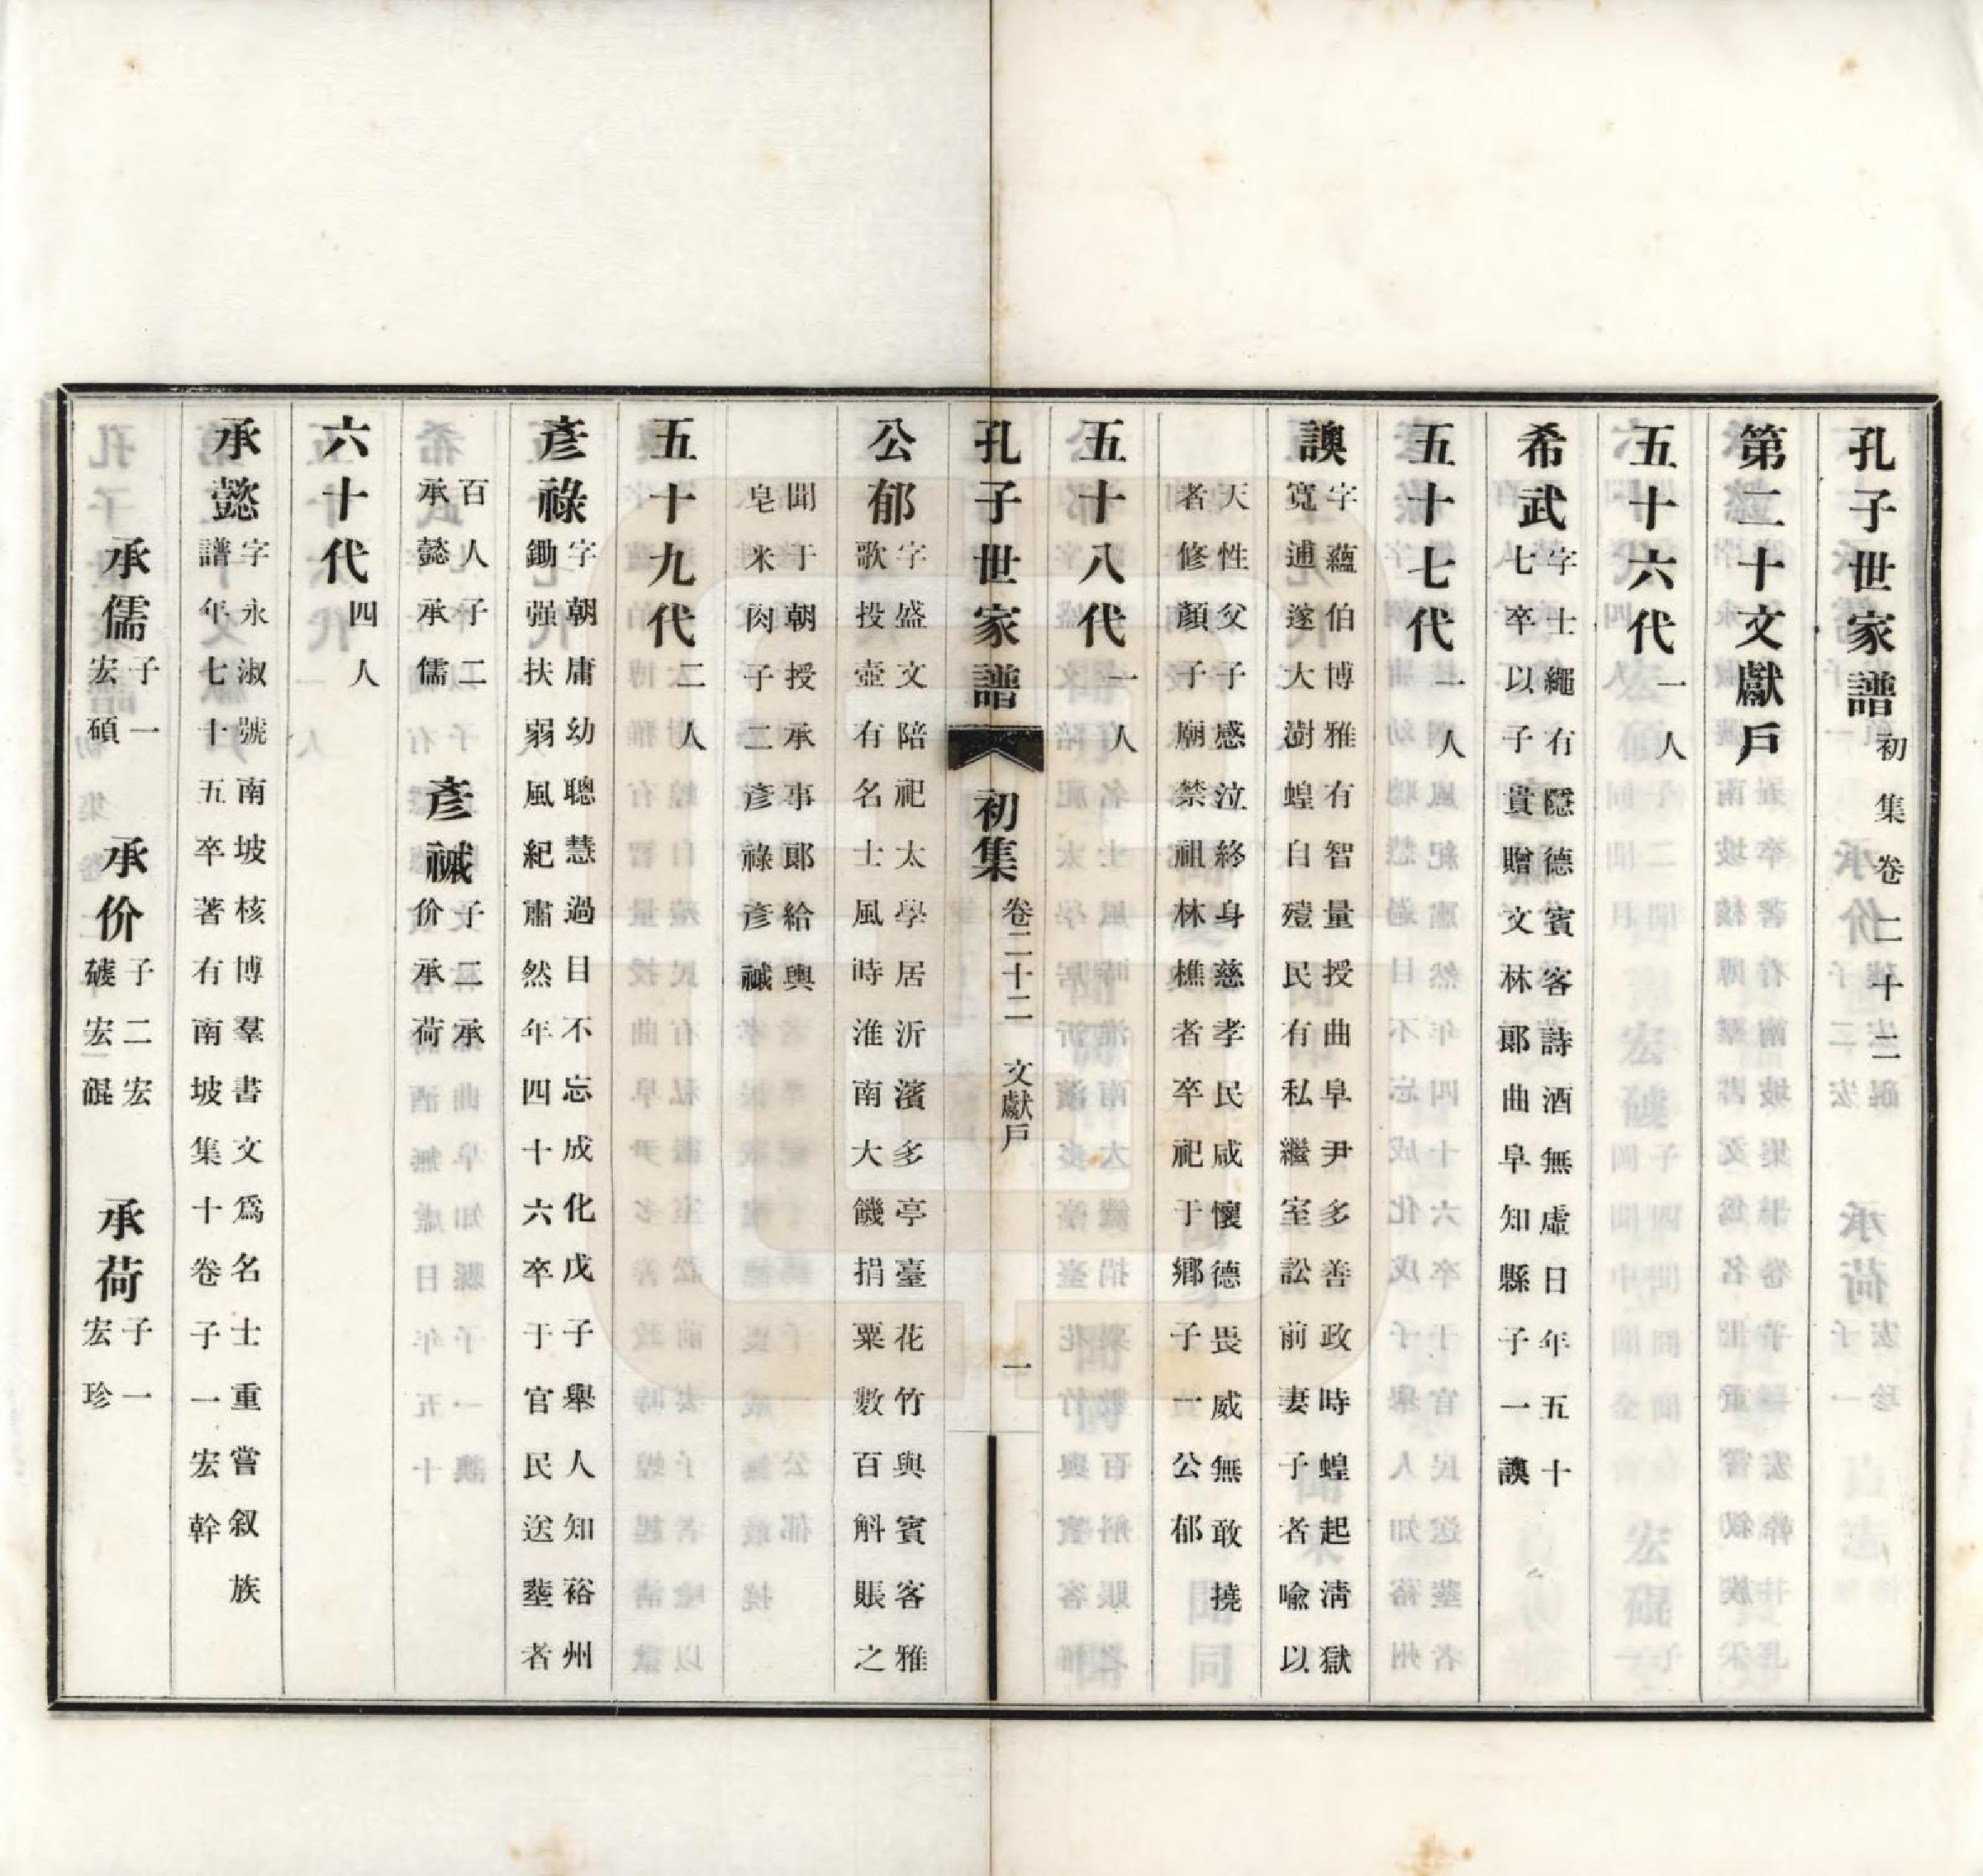 孔子世家譜 初集 卷二十二
第二十文獻戶
五十六代 一人
希武 字士繩有隱德賓客詩酒無虛日年五十
七卒以子貴贈文林郎曲阜知縣子一諛
五十七代 一人
諛 字蘊伯博雅有智量授曲阜尹多善政時蝗起清獄
寬逋遂大澍蝗自殪民有私繼室訟前妻子者喻以
天性父子感泣終身慈孝民咸懷德畏威無敢撓
者修顏子廟禁祖林樵者卒祀于鄉子一公郁
五十八代 一人
孔子世家譜 初集 卷二十二 文獻戶 一
公郁 字盛文陪祀太學居沂濱多亭臺花竹與賓客雅
歌投壺有名士風時淮南大饑捐粟數百斛賬之
聞于朝授承事郎給輿
皂米肉子二彥祿彥祴
五十九代 二人
彥祿 字朝庸幼聰慧過目不忘成化戊子舉人知裕州
鋤强扶弱風紀肅然年四十六卒于官民送塟者
百人子二
承懿承儒
彥祴 子二承
价承荷
六十代 四人
承懿 字永淑號南坡核博羣書文爲名士重嘗叙族
譜年七十五卒著有南坡集十卷子一宏幹
承儒 子一
宏碩
承价 子二宏
磢宏磇
承荷 子一
宏珍